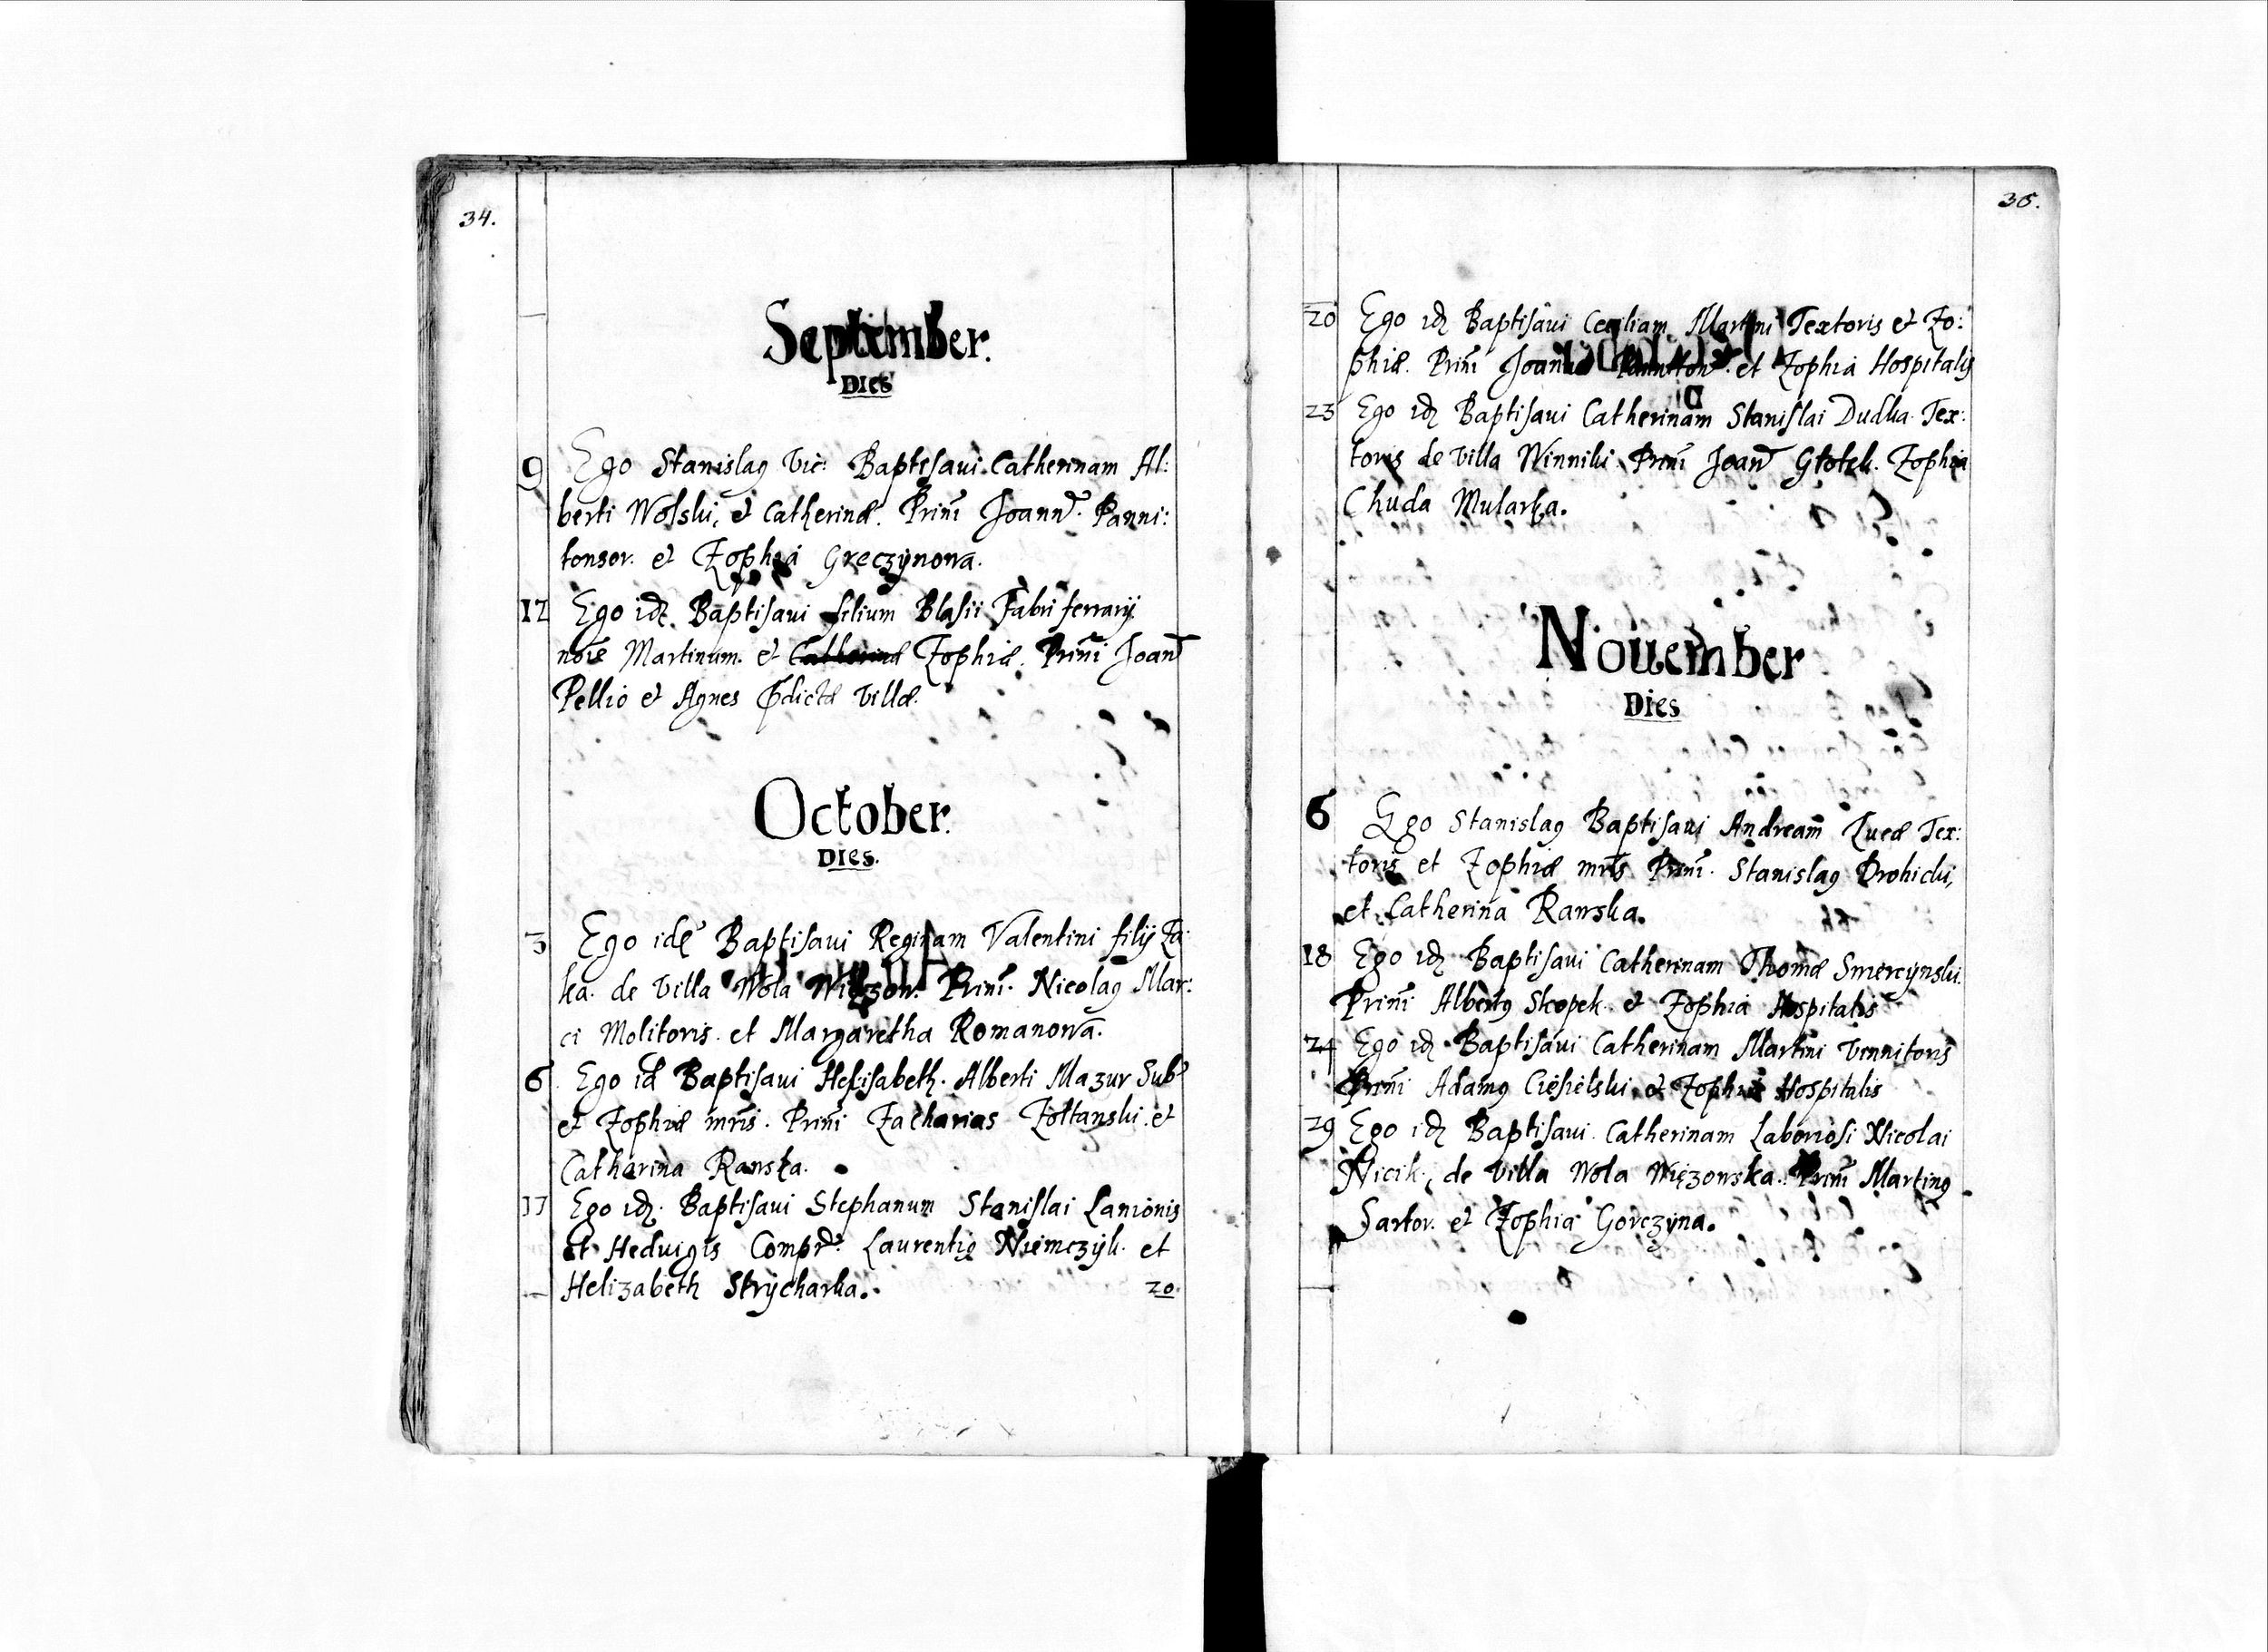 34.
September.
Dies
9 Ego Stanislaꝰ Vic: Baptisaui Catherinam Al:
berti Wolski, et Catherinæ. Prim̄ Joann̄. Panni:
tonsor. et Zophia Greczÿnowa.
12 Ego idē. Baptisaui filium Blasii Fabri ferrarij
noīe Martinum. et Catherinæ Zophiæ. Prim̄ Joan̄
Pellio et Agnes p̄dictæ villæ.
October.
Dies.
3 Ego idē Baptisaui Reginam Valentini filij Za:
ka. de villa Wola Prim̄. Nicolaꝰ Mar:
ci Molitoris. et Margaretha Romanowa.
6 Ego id Baptisaui Helisabeth. Alberti Mazur Sub
et Zophiæ mr̄is. Prim̄ Zacharias Zoltanski. et
Catharina Ranska.
17 Ego idꝫ. Baptisaui Stephanum Stanislai Lanionis
et Heduigis Compr̄: Laurentiꝰ Niemczÿk. et
Helizabeth Strÿcharka.
20.
36.
20 Ego idꝫ Baptisaui Ceciliam Martini Textoris et Zo:
phiæ. Prim̄ et Zophia Hospitalis
23 Ego idꝫ Baptisaui Catherinam Stanislai Dudka Tex:
toris de villa Winniki Prim̄ Joan̄ Zophia
Chuda Mularka.
Nouember
Dies
6 Ego Stanislaꝰ Baptisaui Andream̄ Lucæ Tex:
toris et Zophiæ mr̄is Prim̄. Stanislaꝰ Drohicki,
et Catherina Ranska.
18 Ego idꝫ Baptisaui Catherinam Thomæ Smercÿnski.
Prim̄ Albertꝰ Skopek. et Zophia Hospitalis
24 Ego idꝫ Baptisaui Catherinam Martini Vinnitoris
Prim̄ Adamꝰ Ciesielski, et Zophia Hospitalis
29 Ego idꝫ Baptisaui. Catherinam Laboriosi Nicolai
Nicik, de villa Wola Więzowska. Prim̄ Martinꝰ
Sartor. et Zophia Gorczÿna.